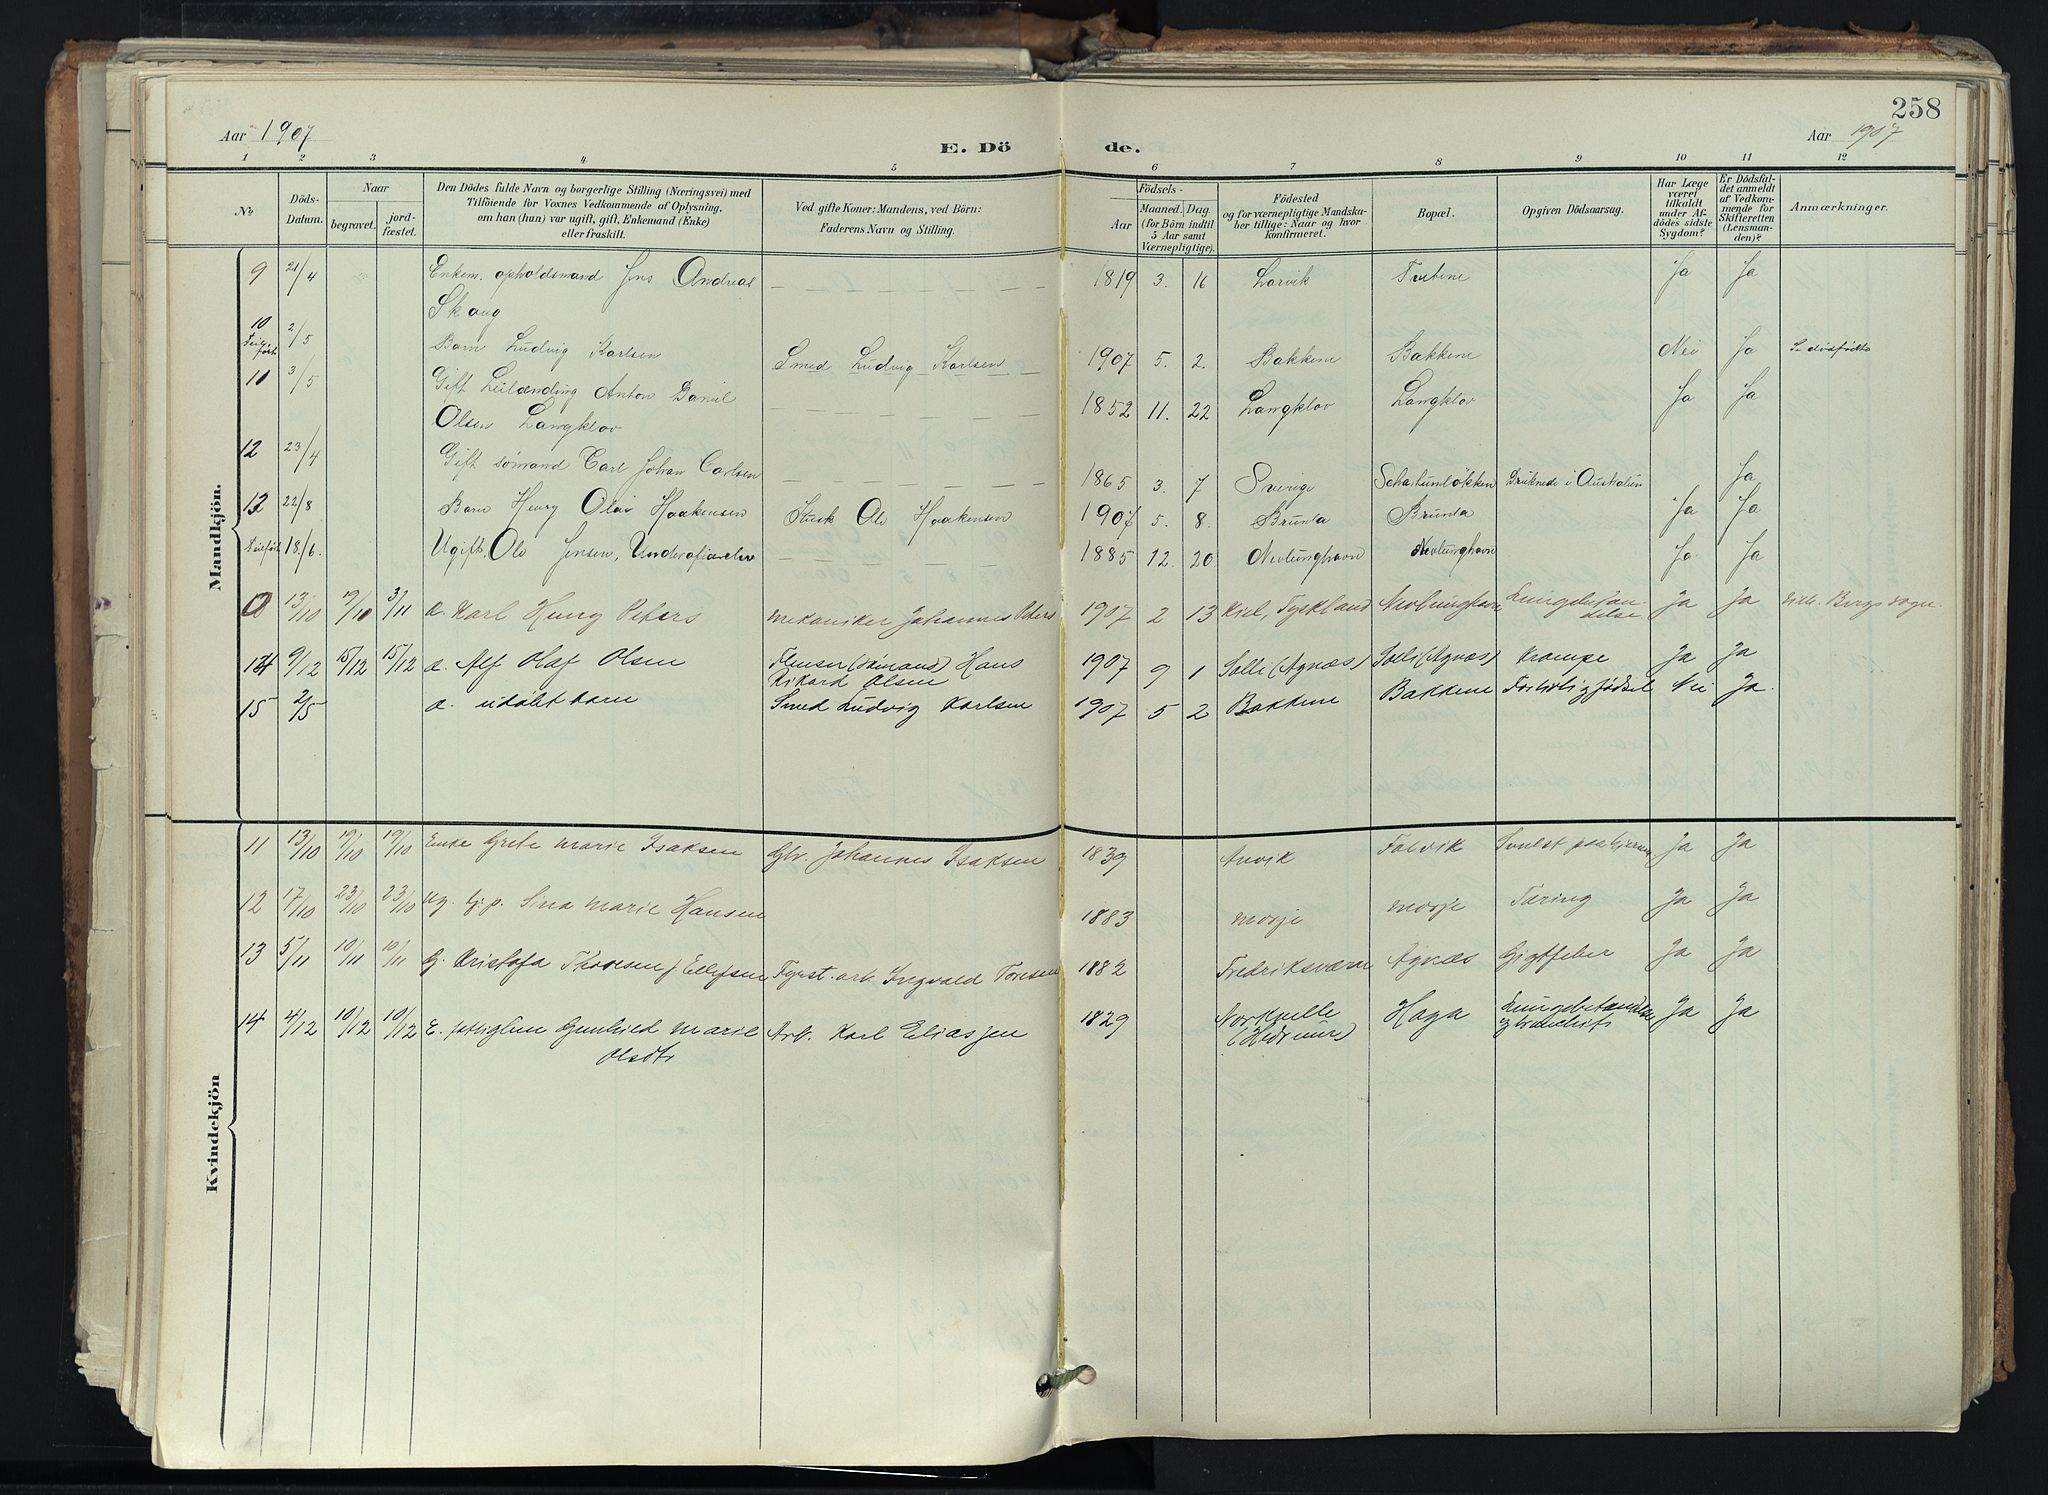 258
Aar 1907
E. Dö
de.
Aar 1907
1 2 3 4 5 6 7 8 9 10 11 12
No
Döds-Datum.
Naar
begravet.
jord-fæstet.
Den Dödes fulde Navn og borgerlige Stilling (Næringsvei) med
Tilföiende for Voxnes Vedkommende af Oplysning.
om han (hun) var ugift, gift, Enkemand (Enke)
eller fraskilt.
Ved gifte Koner: Mandens, ved Börn:
Faderens Navn og Stilling.
Födsels-
Aar
Maaned.
Dag.
(for Börn indtil
5 Aar samt
Værnepligtige).
Födested
og for værnepligtige Mandska-
ber tillige: Naar og hvor
konfirmeret.
Bopæl.
Opgiven Dödsaarsag.
Har Læge
været
tilkaldt
under Af-
dödes sidste
Sygdom?
Er Dödsfal-
det anmeldt
af Vedkom-
mende for
Skifteretten
(Lensman-
den)?
Anmærkninger.
Mandkjön.
9 21/4 Enkem. opholdsmand Jens Andreas 1819 3. 16 Larvik Tvetene Ja Ja
Skaug
10 Feilført 2/5 Barn Ludvig Karlsen Smed Ludvig Karlsen 1907 5. 2. Bakkene Bakkene Nei Ja Se dødfødte
10 3/5 Gift Leilænding Anton Daniel 1852 11. 22 Langklov Langklov Ja Ja
Olsen Langklov
12 23/4 Gift sømand Carl Johan Carlsen 1865 3. 7 Sverige Druknede i Australien Ja
22/8 Barn Henry Olai Haakensen Ole Haakensen 1907 5. 8. Brunla Brunla Ja Ja
Feilført 18/6. Ugift. Ole Jensen, 1885 12. 20 Nevlunghavn Nevlunghavn Ja Ja
13/10 19/10 3/11 a. Karl Henry Peters mekaniker Johannes Peters 1907 2 13 Kiel, Tyskland Nevlunghavn Lungebetæn-delse Ja Ja
14 9/12 15/12 15/12 a. Alf Olaf Olsen (sømand) Hans 1907 9 1 Solli (Agnæs) Solli (Agnæs) Krampe Ja Ja
Rikard Olsen
15 2/5 a. udøbt barn Smed Ludvig Karlsen 1907 5 2 Bakkene Bakkene Forhastig fødsel Nei Ja.
Kvindekjön
11 13/10 19/10 19/10 Enke Grete Marie Isaksen Gbr. Johannes Isaksen 1839 Anvik Falvik Svulst paa hjernen Ja Ja
12 17/10 23/10 23/10 Ug. tj.p. Sina Marie Hansen 1883 Mørje Mørje Tæring Ja Ja
13 5/11 10/11 10/11 G. Kristofa Thoresen f Ellefsen Fyrst. arb. Ingvald Toresen 1882 Fredriksværn Agnæs Gigtfeber Ja Ja
14 4/12 10/12 10/12 E. fattiglem Gunhild Marie Arb. Karl Eliasen 1829 Haga Lungebetændelse Ja Ja
Olsdtr (Hedrum)